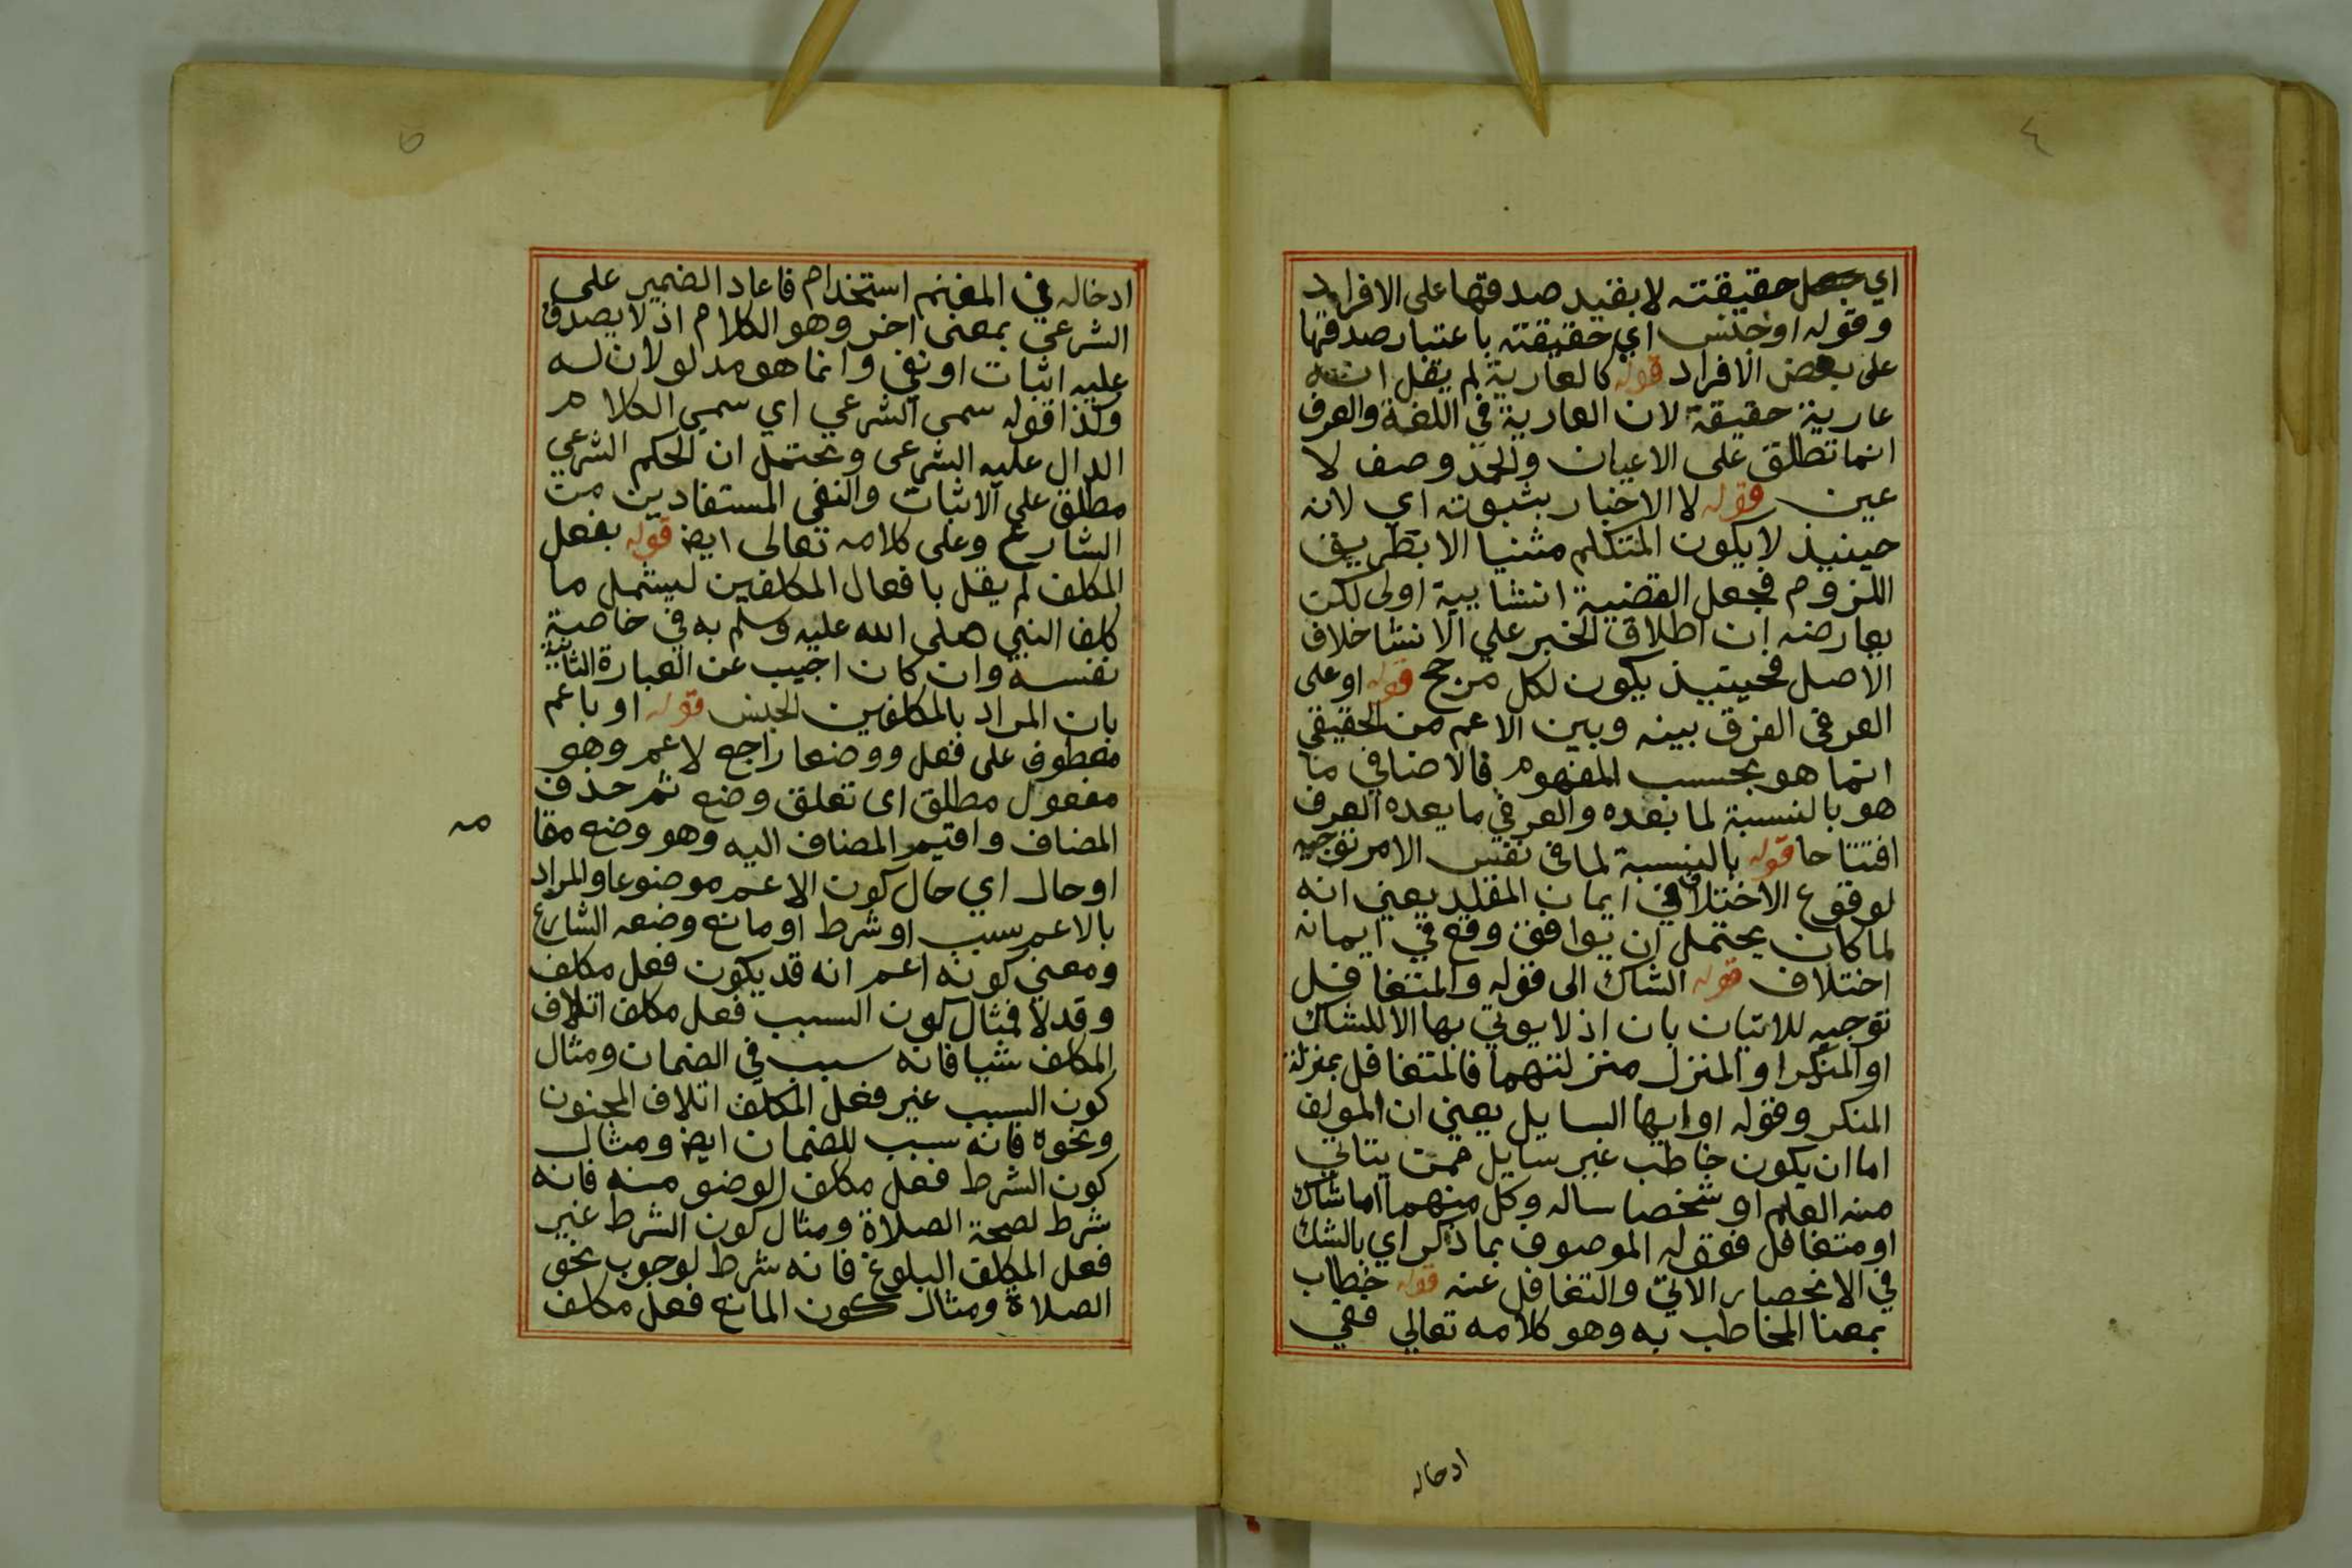 ٤
اي حقيقته لا بقيد صدقها على الافراد
وقوله او جنس اي حقيقته باعتبار صدقها
على بعض الافراد قوله كالعارية لم يقل انه
عارية حقيقة لان العارية في اللغة والعرف
انما تطلق على الاعيان والحمد وصف لا
عين قوله لا الاخبار بثبوته اي لانه
حينيذ لا يكون المتكلم مثنيا الا بطريق
اللزوم فجعل القضية انشايية اولى لكن
يعارضه ان اطلاق الخبر على الانشا خلاف
الاصل فحينيذ يكون لكل مرجح قوله او على
العرفي الفرق بينه وبين الاعم من الحقيقي
انما هو بحسب المفهوم فالاضافي ما
هو بالنسبة لما بعده والعرفي ما يعده العرف
افتتاحا قوله بالنسبة لما في نفس الامر توجيه
لوقوع الاختلاف في ايمان المقلد يعني انه
لما كان يحتمل ان يوافق وقع في ايمانه
اختلاف قوله الشاك الى قوله والمتغافل
توجيه للاتيان بان اذ لا يوتي بها الا للشاك
او المنكر او المنزل منزلتهما فالمتغافل بمنزلة
المنكر وقوله او ايها السايل يعني ان المولف
اما ان يكون خاطب غير سايل ممن يتاتي
منه العلم او شخصا ساله وكل منهما اما شاك
او متغافل فقوله الموصوف بما ذكر اي بالشك
في الانحصار الاتي والتغافل عنه قوله خطاب
بمعنا المخاطب به وهو كلامه تعالي ففي
ادخاله
٥
ادخاله في المغنم استخدام فاعاد الضمير على
الشرعي بمعنى اخر وهو الكلام اذ لا يصدق
عليه اثبات او نفي وانما هو مدلولان له
وكذا قوله سمى الشرعي اي سمي الكلام
الدال عليه الشرعي ويحتمل ان الحكم الشرعي
مطلق على الاثبات والنفي المستفادين من
الشارع وعلى كلامه تعالى ايض قوله بفعل
المكلف لم يقل بافعال المكلفين ليشمل ما
كلف النبي صلى الله عليه وسلم به في خاصية
نفسه وان كان اجيب عن العبارة الثانية
بان المراد بالمكلفين الجنس قوله او باعم
معطوف على فعل ووضعا راجع لاعم وهو
مفعول مطلق اى تعلق وضع ثم حذف
المضاف واقيم المضاف اليه وهو وضع مقا
مه
او حال اي حال كون الاعم موضوعا والمراد
بالاعم سبب او شرط او مانع وضعه الشارع
ومعني كونه اعم انه قد يكون فعل مكلف
وقد لا فمثال كون السبب فعل مكلف اتلاف
المكلف شيا فانه سبب في الضمان ومثال
كون السبب غير فعل المكلف اتلاف المجنون
ونحوه فانه سبب للضمان ايض ومثال
كون الشرط فعل مكلف الوضو منه فانه
شرط لصحة الصلاة ومثال كون الشرط غير
فعل المكلف البلوغ فانه شرط لوجوب نحو
الصلاة ومثال كون المانع فعل مكلف